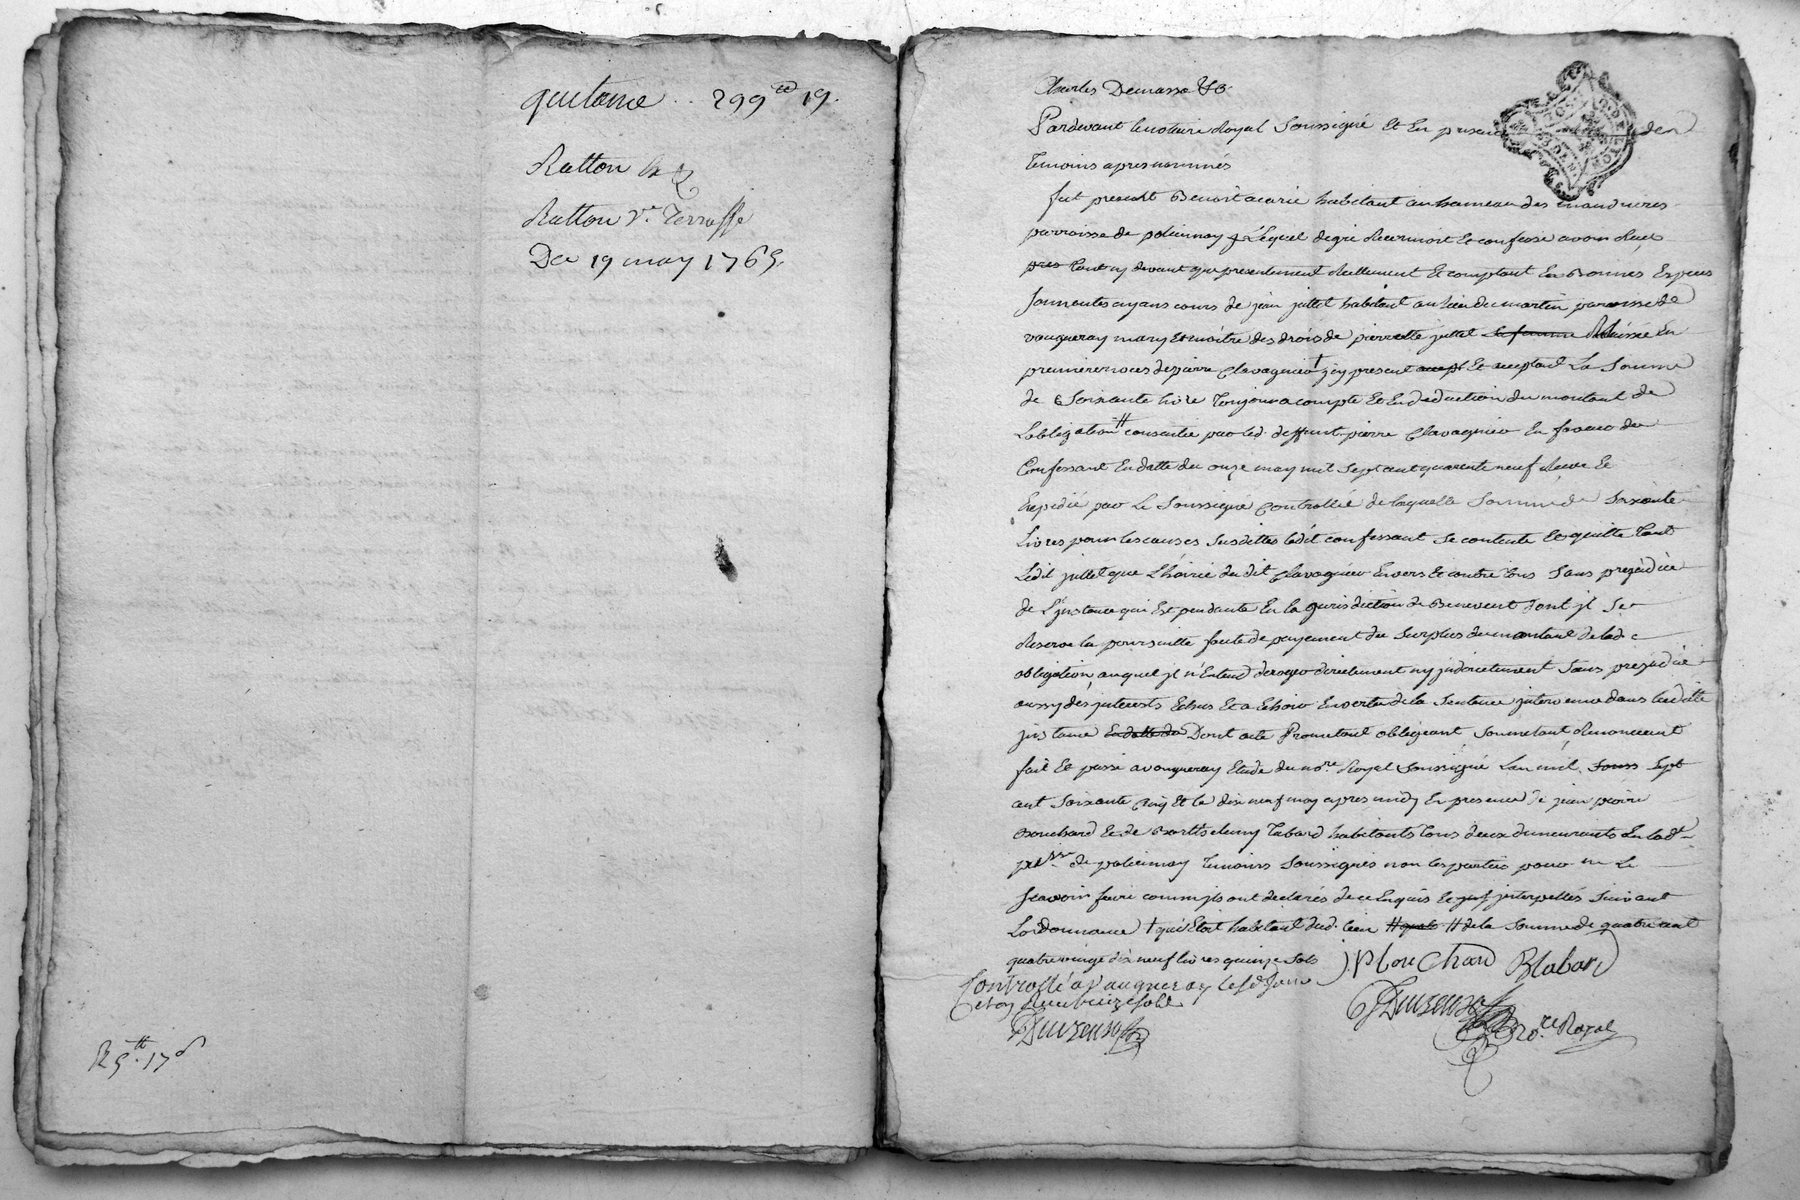 quitance .. 299 19.
Ratton
Ratton Ve. Terrasse
Du 19 may 1765.
R 5tt. 17
Charles Demasso &c.
Pardevant le notaire Royal Soussigné Et En presence des
Temoins apres nommés
fut present Benoit acarie habitant au hameau des
parroisse de pollionnay Lequel de gré Reconnoit et confesse avoir Reçu
pres tant cy devant que presentement Reellement Et comptant En Bonnes Especes
Sonnentes ayans cours de jean jullet habitant au lieu du martin parroisse de
vaugneray mary Et maitre des droits de pierrette jullet sa femme Relaissée En
premieres noces de pierre Clavagnieo † jcy present accept Et acceptant La Somme
de Soixante livre Toujours a compte Et En deduction du montant de
Lobligation # consentie par led. deffunt pierre Clavagnieo En faveur du
Confessant En datte du onze may mil Sept cent quarente neuf Receue Et
Expedié par Le Soussigné Controllée de laquelle Somme de Soixante
Livres pour les causes Susdittes ledit confessant Se contente Et quitte Tant
Ledit jullet que L'hoirie du dit Clavagnieo Envers Et contre tous Sans prejudice
de L'jnstance qui Est pendante En la jurisdiction de Benevent dont jl Se
Reserve la poursuitte faute de payement du Surplus du montant de lad.e
obligation, auquel jl n'Entend deroger directement ny jndirectement Sans prejudice
aussy des jnterests Echus Et a Echoir En vertu de la Sentence jntervenue dans laditte
jnstance En datte du Dont acte Promettant obligeant Soumettant Renonceant
fait Et passé a vaugneray Etude du nore. Royal Soussigné Lan mil Souss Sept
cent Soixante Cinq Et le dix neuf may apres midy En presence de jean pierre
Bouchard Et de Barthelemy Tabard habitants Tous deux demeurants En lad.
psse. de pollionnay Temoins Soussignés non les parties pour ne Le
Scavoir faire comm'jls ont declarés de ce Enquis Et jnterpellés Suivant
Lordonnance † qui Etoit habitant dud. lieu # de la Somme de quatre cent
quatre vingt dix neuf livres quinze Sols J. P Bouchard B tabard
Controllé a Vaugneray le
Reçu
Royal